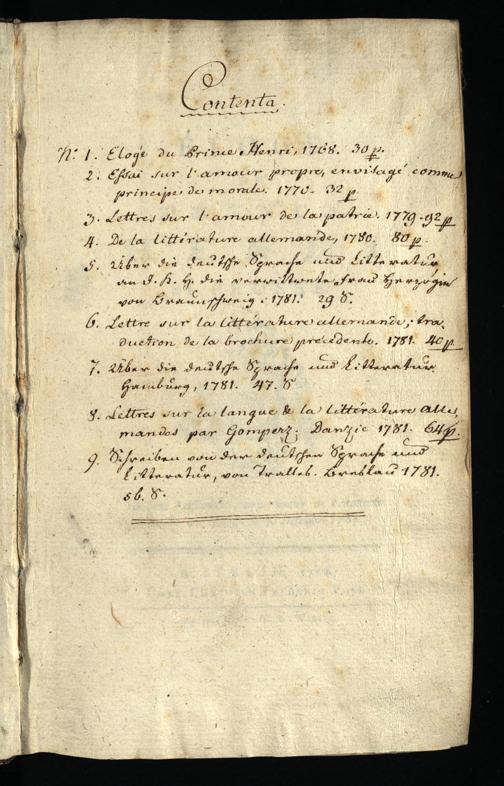 Contenta.
N. 1. Eloge du Prince Henri, 1768. 30 p.
2. Essai sur l'amour propre, envisagé comme
principe de morale. 1770. 32 p
3. Lettres sur l'amour de la patrie. 1779. 92 p
4. De la littérature allemande, 1780. 80 p.
5. Über die deutsche Sprache und Litteratur
an I. K. H. die verwittwete Frau Herzogin
von Braunschweig. 1781. 29 S.
6. Lettre sur la littérature allemande; tra-
duction de la brochure précédente. 1781. 40 p
7. Über die deutsche Sprache und Litteratur
Hamburg, 1781. 47. S
8. Lettres sur la langue & la littérature alle,
mandes par Gomperz. Danzic 1781. 64 p.
9. Schreiben von der deutschen Sprache und
Litteratur, von Tralles. Breslau 1781.
56. S.